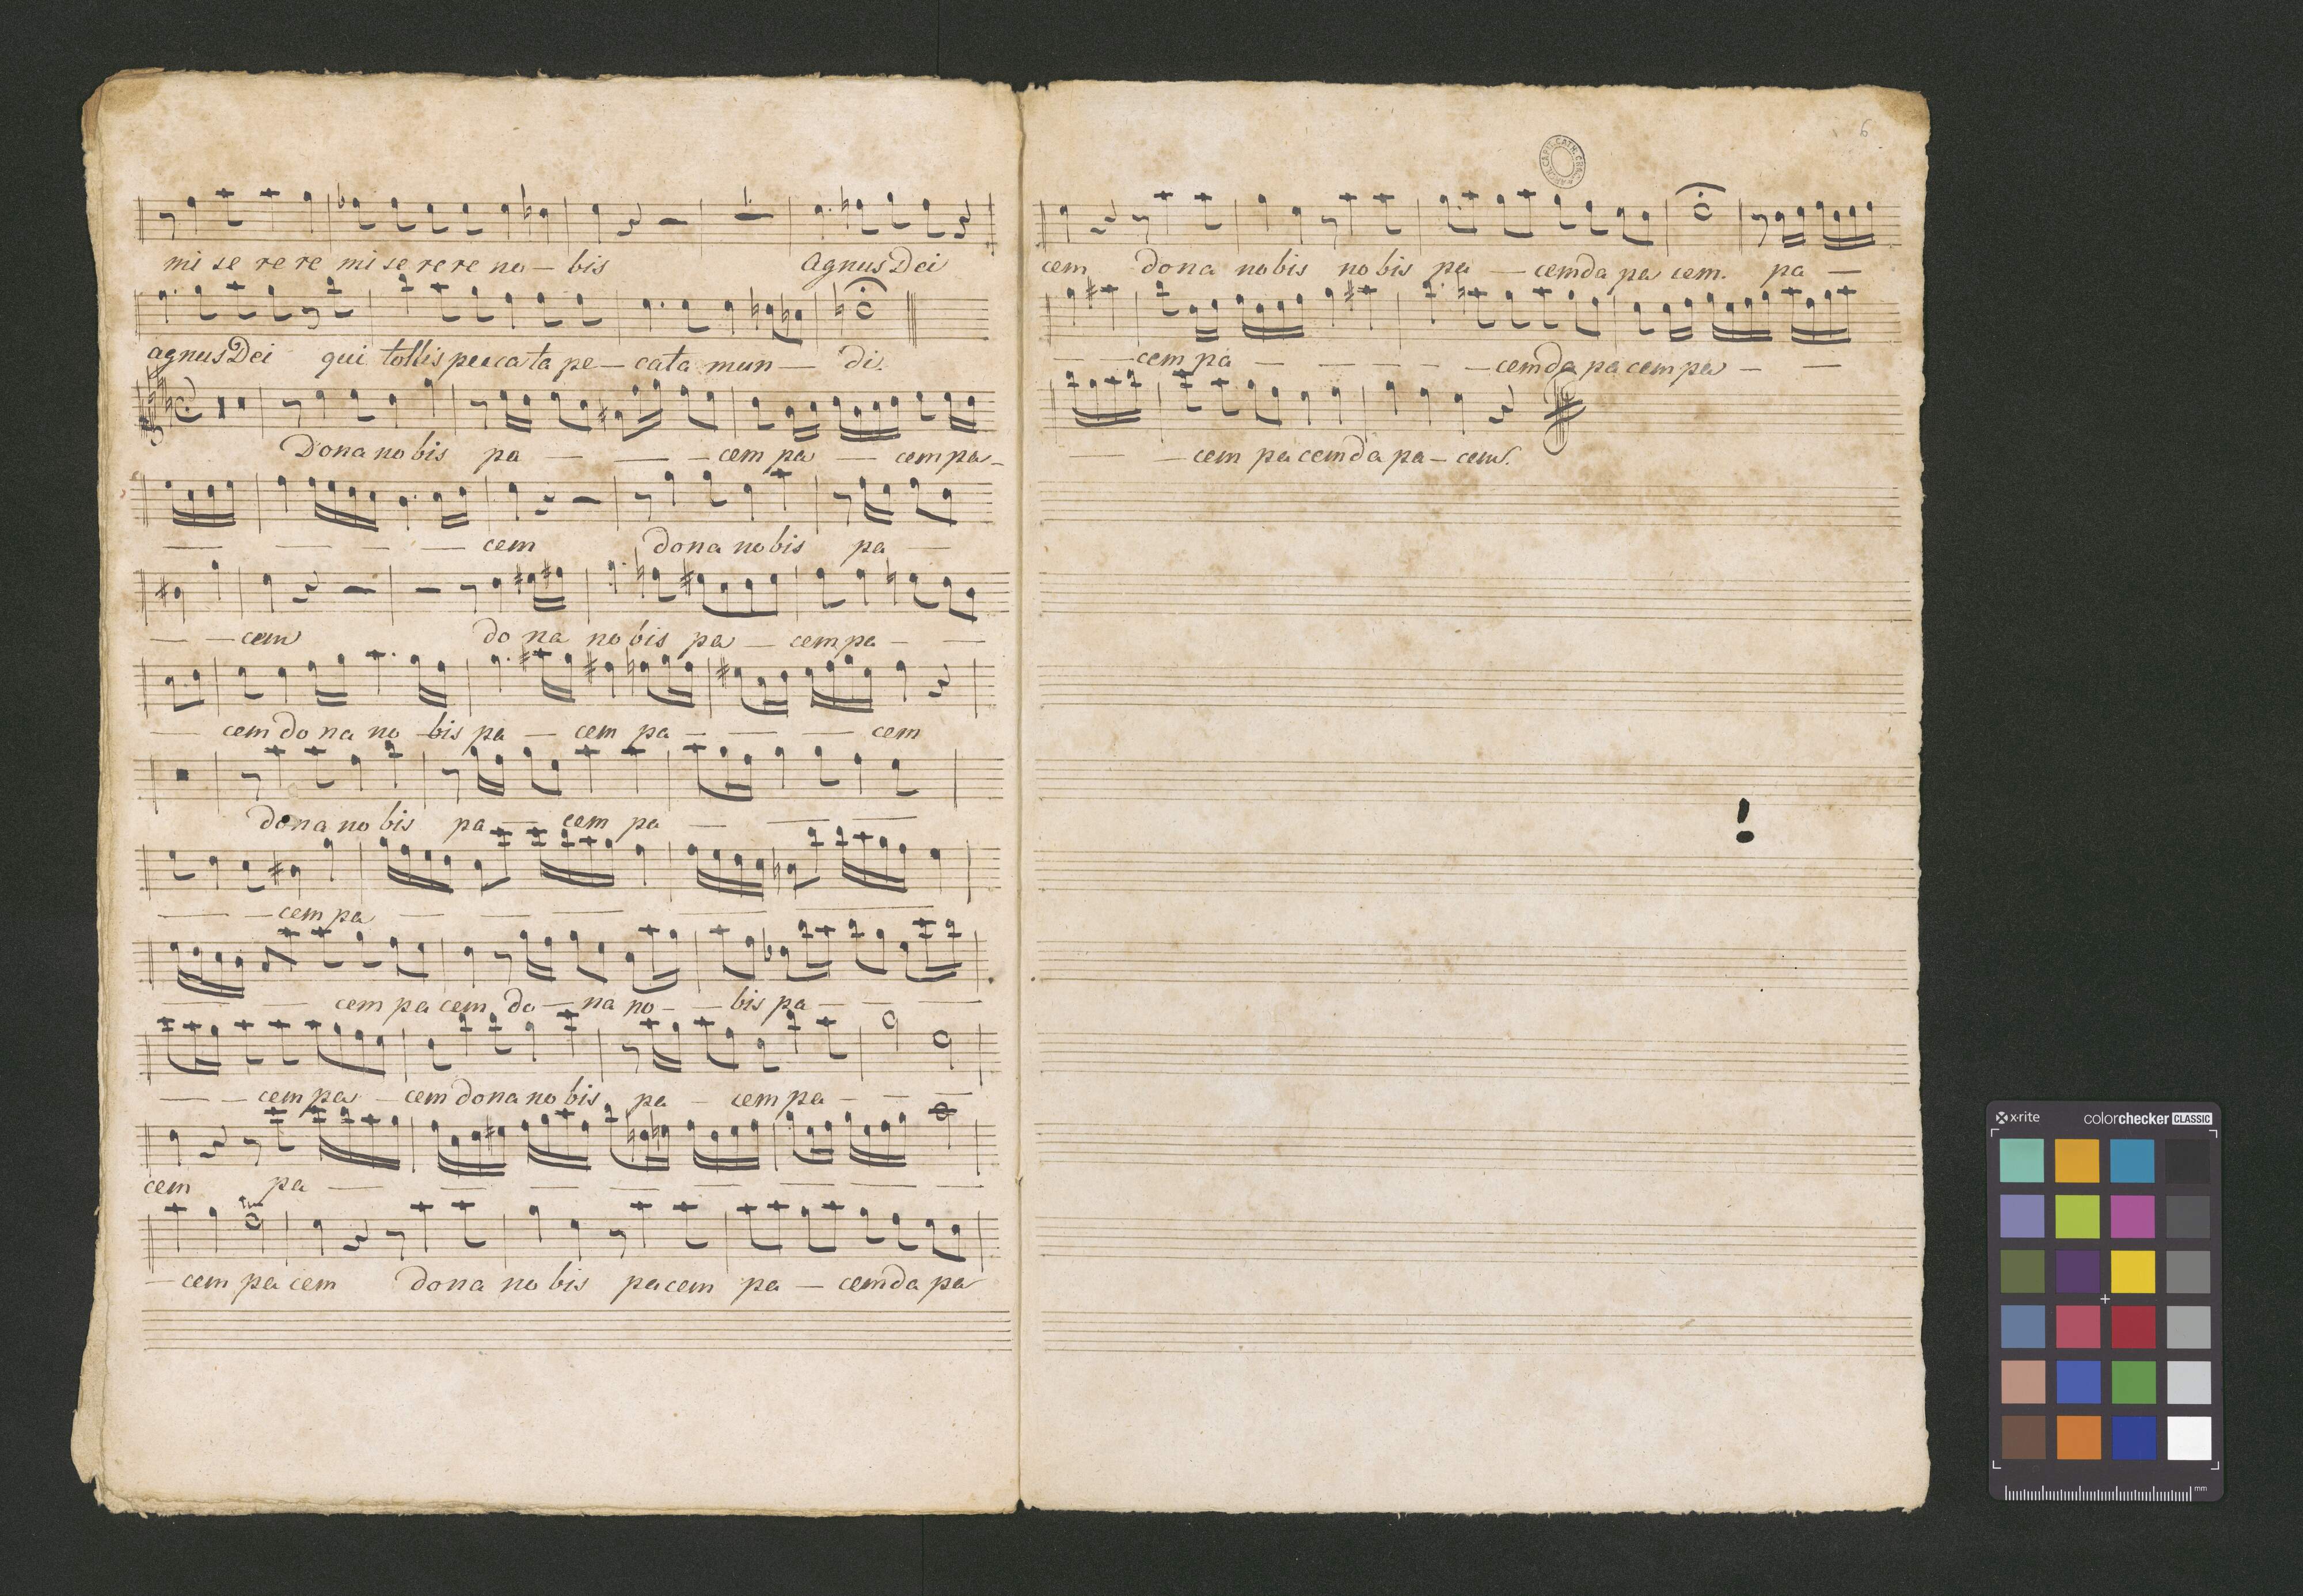 mi se re re mi se re re no - bis Agnus Dei
agnus Dei qui tollis peccata pe - cata mun - di.
Dona no bis pa - - - cem pa - cem pa -
- - - - cem dona no bis pa -
- - cem do na no bis pa - cem pa - -
- cem do na no - bis pa - cem pa - - - cem
dona no bis pa - cem pa - - -
- - - cem pa - - - - - -
- - - cem pa cem do - na no - - bis pa - - -
- - - cem pa - cem dona no bis pa - cem pa - - -
cem pa - - - - - - - -
- cem pa cem dona no bis pa cem pa - cem da pa
6
cem dona no bis no bis pa - cem da pa cem. pa -
- - cem pa - - - - - cem da pa cem pa - -
- - cem pa cem da pa - cem.
!
x-rite colorchecker CLASSIC
mm